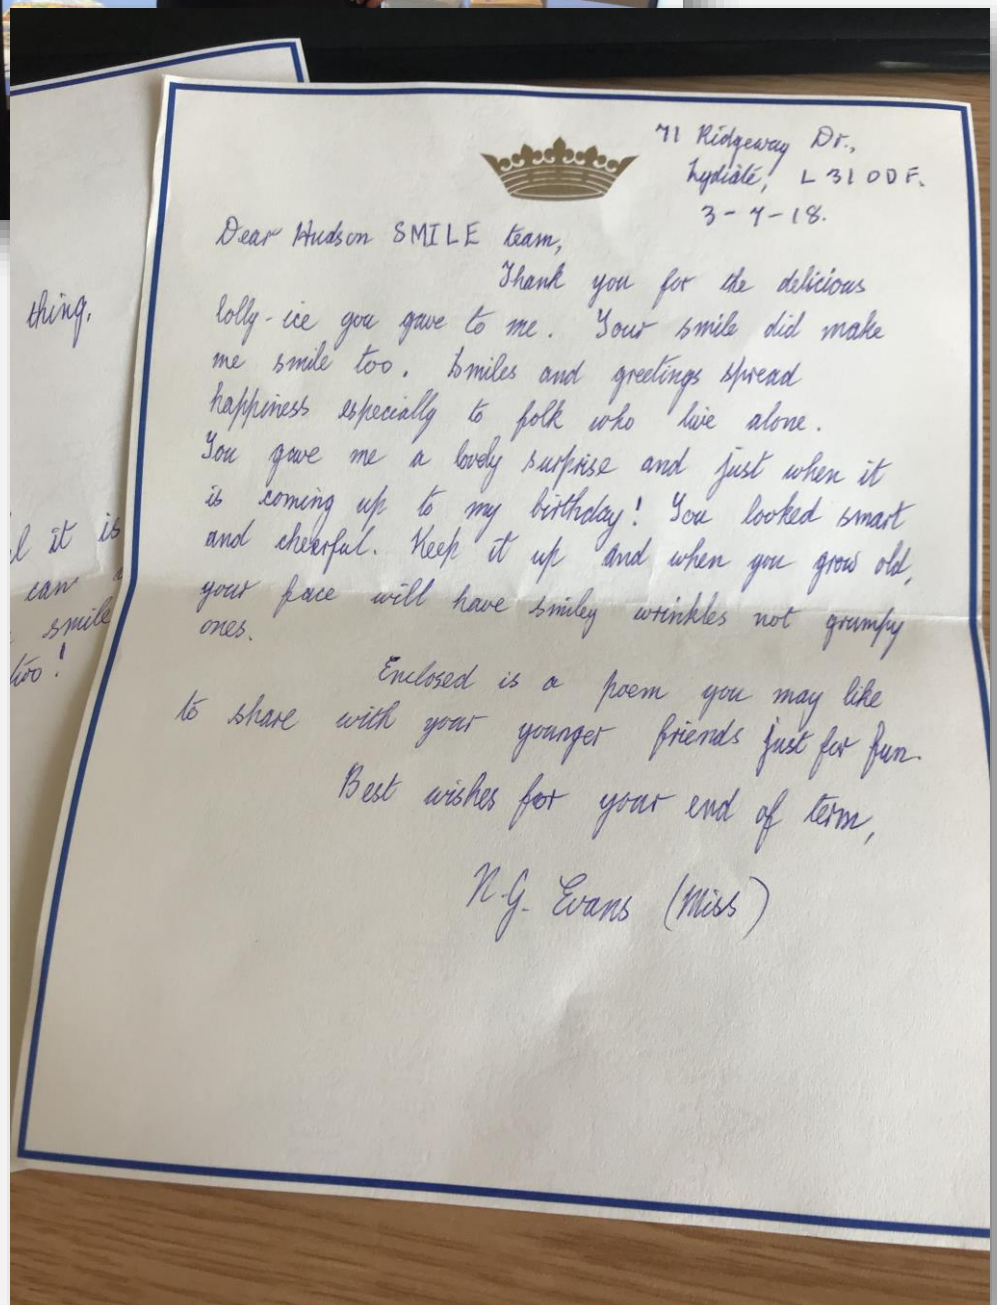 71 Ridgeway Dr.,
Lydiate, L31 0DF.
3-7-18.
Dear Hudson SMILE team,
Thank you for the delicious
lolly-ice you gave to me. Your smile did make
me smile too. Smiles and greetings spread
happiness especially to folk who live alone.
You gave me a lovely surprise and just when it
is coming up to my birthday! You looked smart
and cheerful. Keep it up and when you grow old,
your face will have smiley wrinkles not grumpy
ones.
Enclosed is a poem you may like
to share with your younger friends just for fun.
Best wishes for your end of term,
N.G. Evans (Miss)
thing.
it is
can
smile
too!